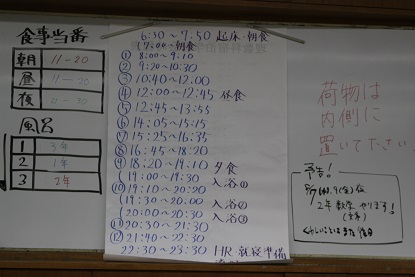 食事当番
朝 11-20
昼 11-20
夜 11-20
風呂
1 3年
2 1年
3 2年
6:30〜7:50 起床・朝食
(7:00〜朝食
① 8:00〜9:10
② 9:20〜10:30
③ 10:40〜12:00
④ 12:00〜12:45 昼食
⑤ 12:45〜13:55
⑥ 14:05〜15:15
⑦ 15:25〜16:35
⑧ 16:45〜18:20
⑨ 18:20〜19:10 夕食
(19:00〜19:30 入浴①
⑩ 19:10〜20:20
(19:30〜20:00 入浴②
(20:00〜20:30 入浴③
⑪ 20:30〜21:30
⑫ 21:40〜22:30
22:30〜23:30 HR 就寝準備
荷物は
内側に
置いてください
予告。
2年数学やります!
くわしいことはまた後日